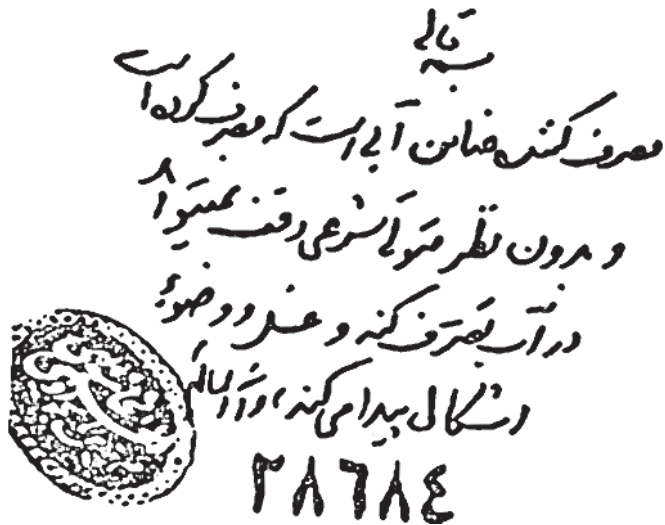 بسمه تعالی
مصرف کننده ضامن آبی است که مصرف کرده است
و بدون نظر متولی شرعی وقف نمیتواند
در آب تصرف کند و غسل و وضوء
اشکال پیدا می کند، والله العالم
۲۸۶۸٤